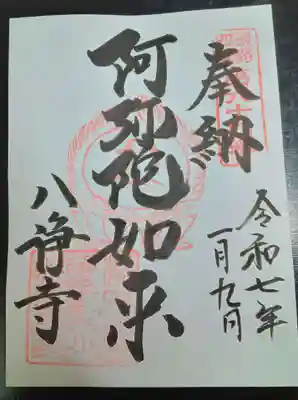 奉納
令和七年
一月九日
阿弥陀如来
八浄寺